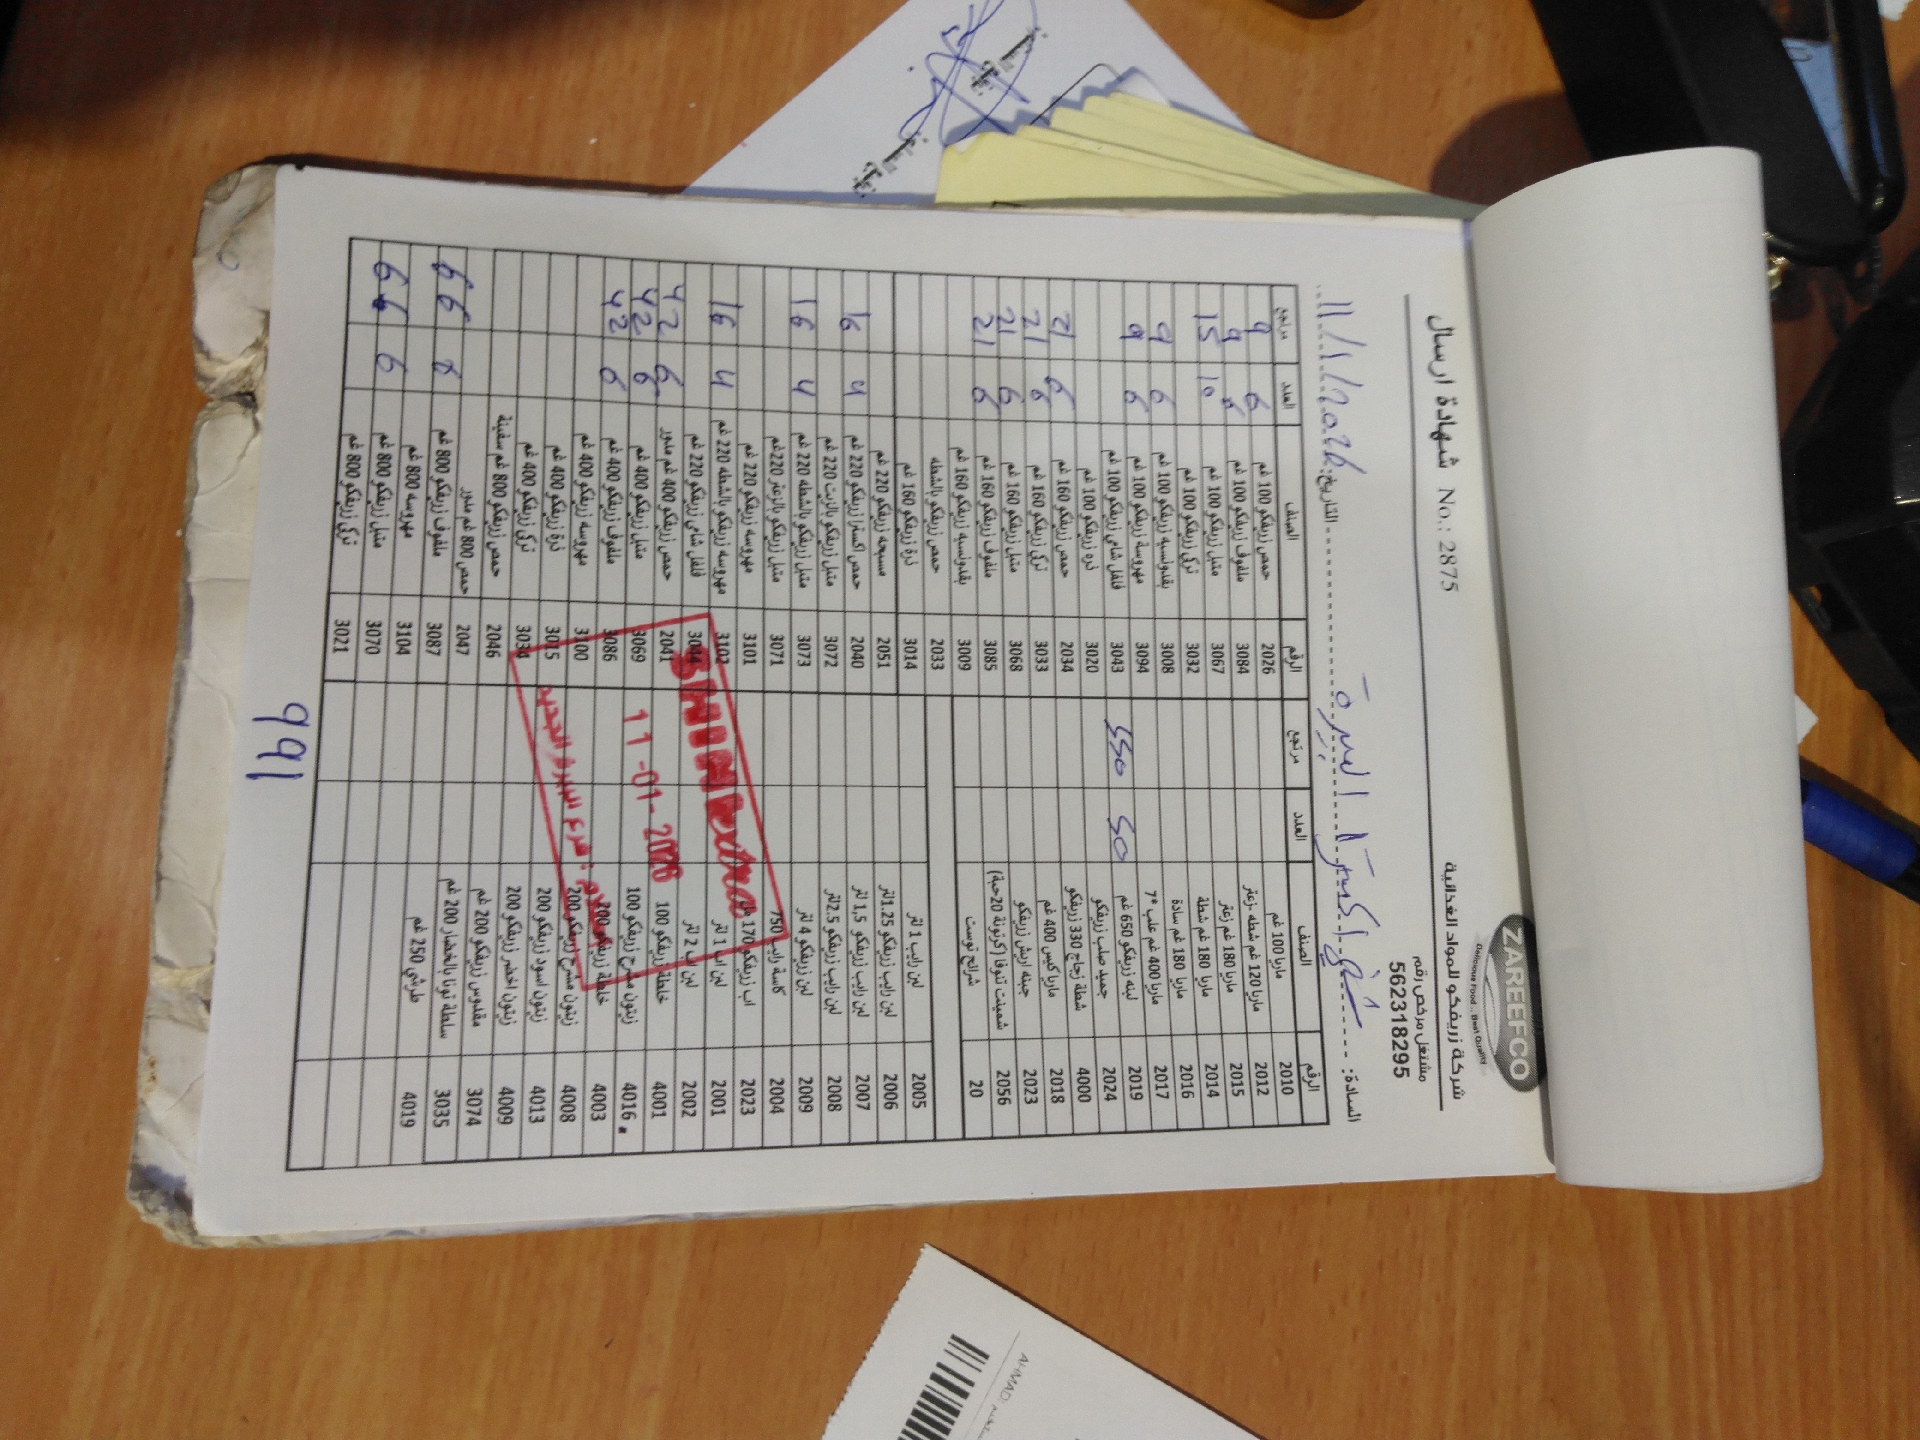 ZAREEFCO
Delicious Food... Best Quality
شركة زريفكو للمواد الغذائية
مشتغل مرخص رقم
562318295
شهادة ارسال No.: 2875
السادة: البيرة
التاريخ: 11/1/2026
الرقم الصنف العدد مرتجع الرقم الصنف العدد مرتجع
2010 مارنا 100 غم 2026 حمص زريفكو 100 غم 6 9
2012 مارنا 120 غم شطه ،زعتر 3084 ملفوف زريفكو 100 غم 6 9
2015 مارنا 180 غم زعتر 3067 متبل زريفكو 100 غم 10 15
2014 مارنا 180 غم شطة 3032 تركي زريفكو 100 غم
2016 مارنا 180 غم سادة 3008 بقدونسيه زريفكو 100 غم 6 9
2017 مارنا 400 غم علب *7 3094 مهروسة زريفكو 100 غم 6 9
2019 لبنه زريفكو 650 غم 50 550 3043 فلفل شامي زريفكو 100 غم
2024 جميد صلب زريفكو 3020 ذره زريفكو 100 غم
4000 شطة زجاج 330 زريفكو 2034 حمص زريفكو 160 غم 6 21
2018 مارنا كيس 400 غم 3033 تركي زريفكو 160 غم 6 21
2023 جبنه اريش زريفكو 3068 متبل زريفكو 160 غم 6 21
2056 شمينت تنوفا (كرتونة 20حبة) 3085 ملفوف زريفكو 160 غم 6 21
20 شرائح توست 3009 بقدونسيه زريفكو 160 غم
2033 حمص زريفكو بالشطه
2005 لبن رايب 1 لتر 3014 ذرة زريفكو 160 غم
2006 لبن رايب زريفكو 1.25لتر 2051 مسبحه زريفكو 220 غم
2007 لبن رايب زريفكو 1,5 لتر 2040 حمص اكسترا زريفكو 220 غم 4 16
2008 لبن رايب زريفكو 2.5لتر 3072 متبل زريفكو بالزيت 220 غم
2009 لبن زريفكو 4 لتر 3073 متبل زريفكو بالشطه 220 غم 4 16
2004 كاسة رايب 750 3071 متبل زريفكو بالزعتر 220 غم
2023 لب زريفكو 170 3101 مهروسه زريفكو 220 غم
2001 لبن اب 1 لتر 3102 مهروسه زريفكو بالشطه 220 غم 4 16
2002 لبن اب 2 لتر 3044 فلفل شامي زريفكو 220 غم
4001 خلطة زريفكو 100 2041 حمص زريفكو 400 غم مدور 6 42
4016 زيتون مشرح زريفكو 100 3069 متبل زريفكو 400 غم 6 42
4003 خلطة زريفكو 200 3086 ملفوف زريفكو 400 غم 6 42
4008 زيتون مشرح زريفكو 200 3100 مهروسه زريفكو 400 غم
4013 زيتون اسود زريفكو 200 3015 ذرة زريفكو 400 غم
4009 زيتون اخضر زريفكو 200 3034 تركي زريفكو 400 غم
3074 مقدوس زريفكو 200 غم 2046 حمص زريفكو 800 غم سفينة
3035 سلطة تونا بالخضار 200 غم 2047 حمص 800 غم مدور
4019 طرشي 250 غم 3087 ملفوف زريفكو 800 غم
3104 مهروسه 800 غم
3070 متبل زريفكو 800 غم 6
3021 تركي زريفكو 800 غم
11-01-2026
فرع البيرة الجديد
991
AHMAD